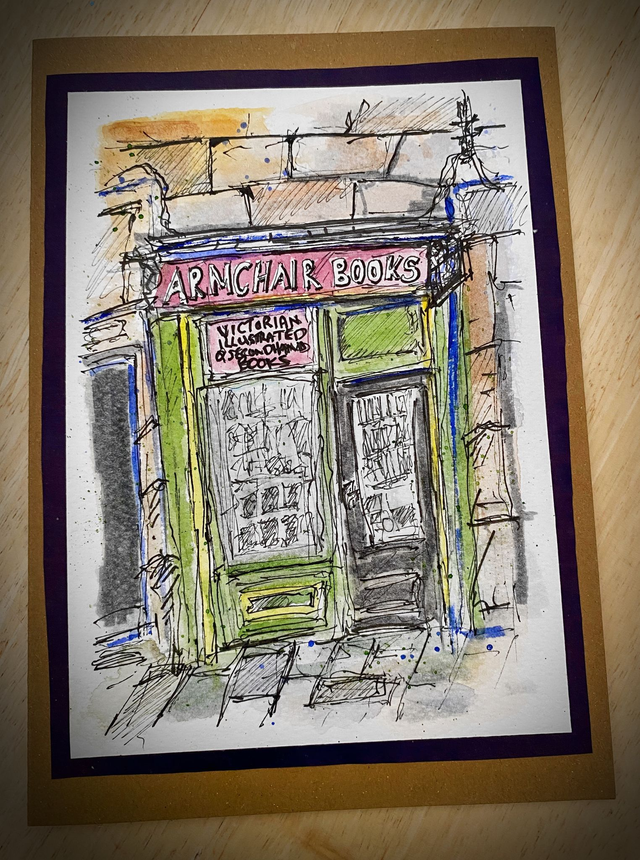 ARMCHAIR BOOKS
VICTORIAN
ILLUSTRATED
& SECONDHAND
BOOKS